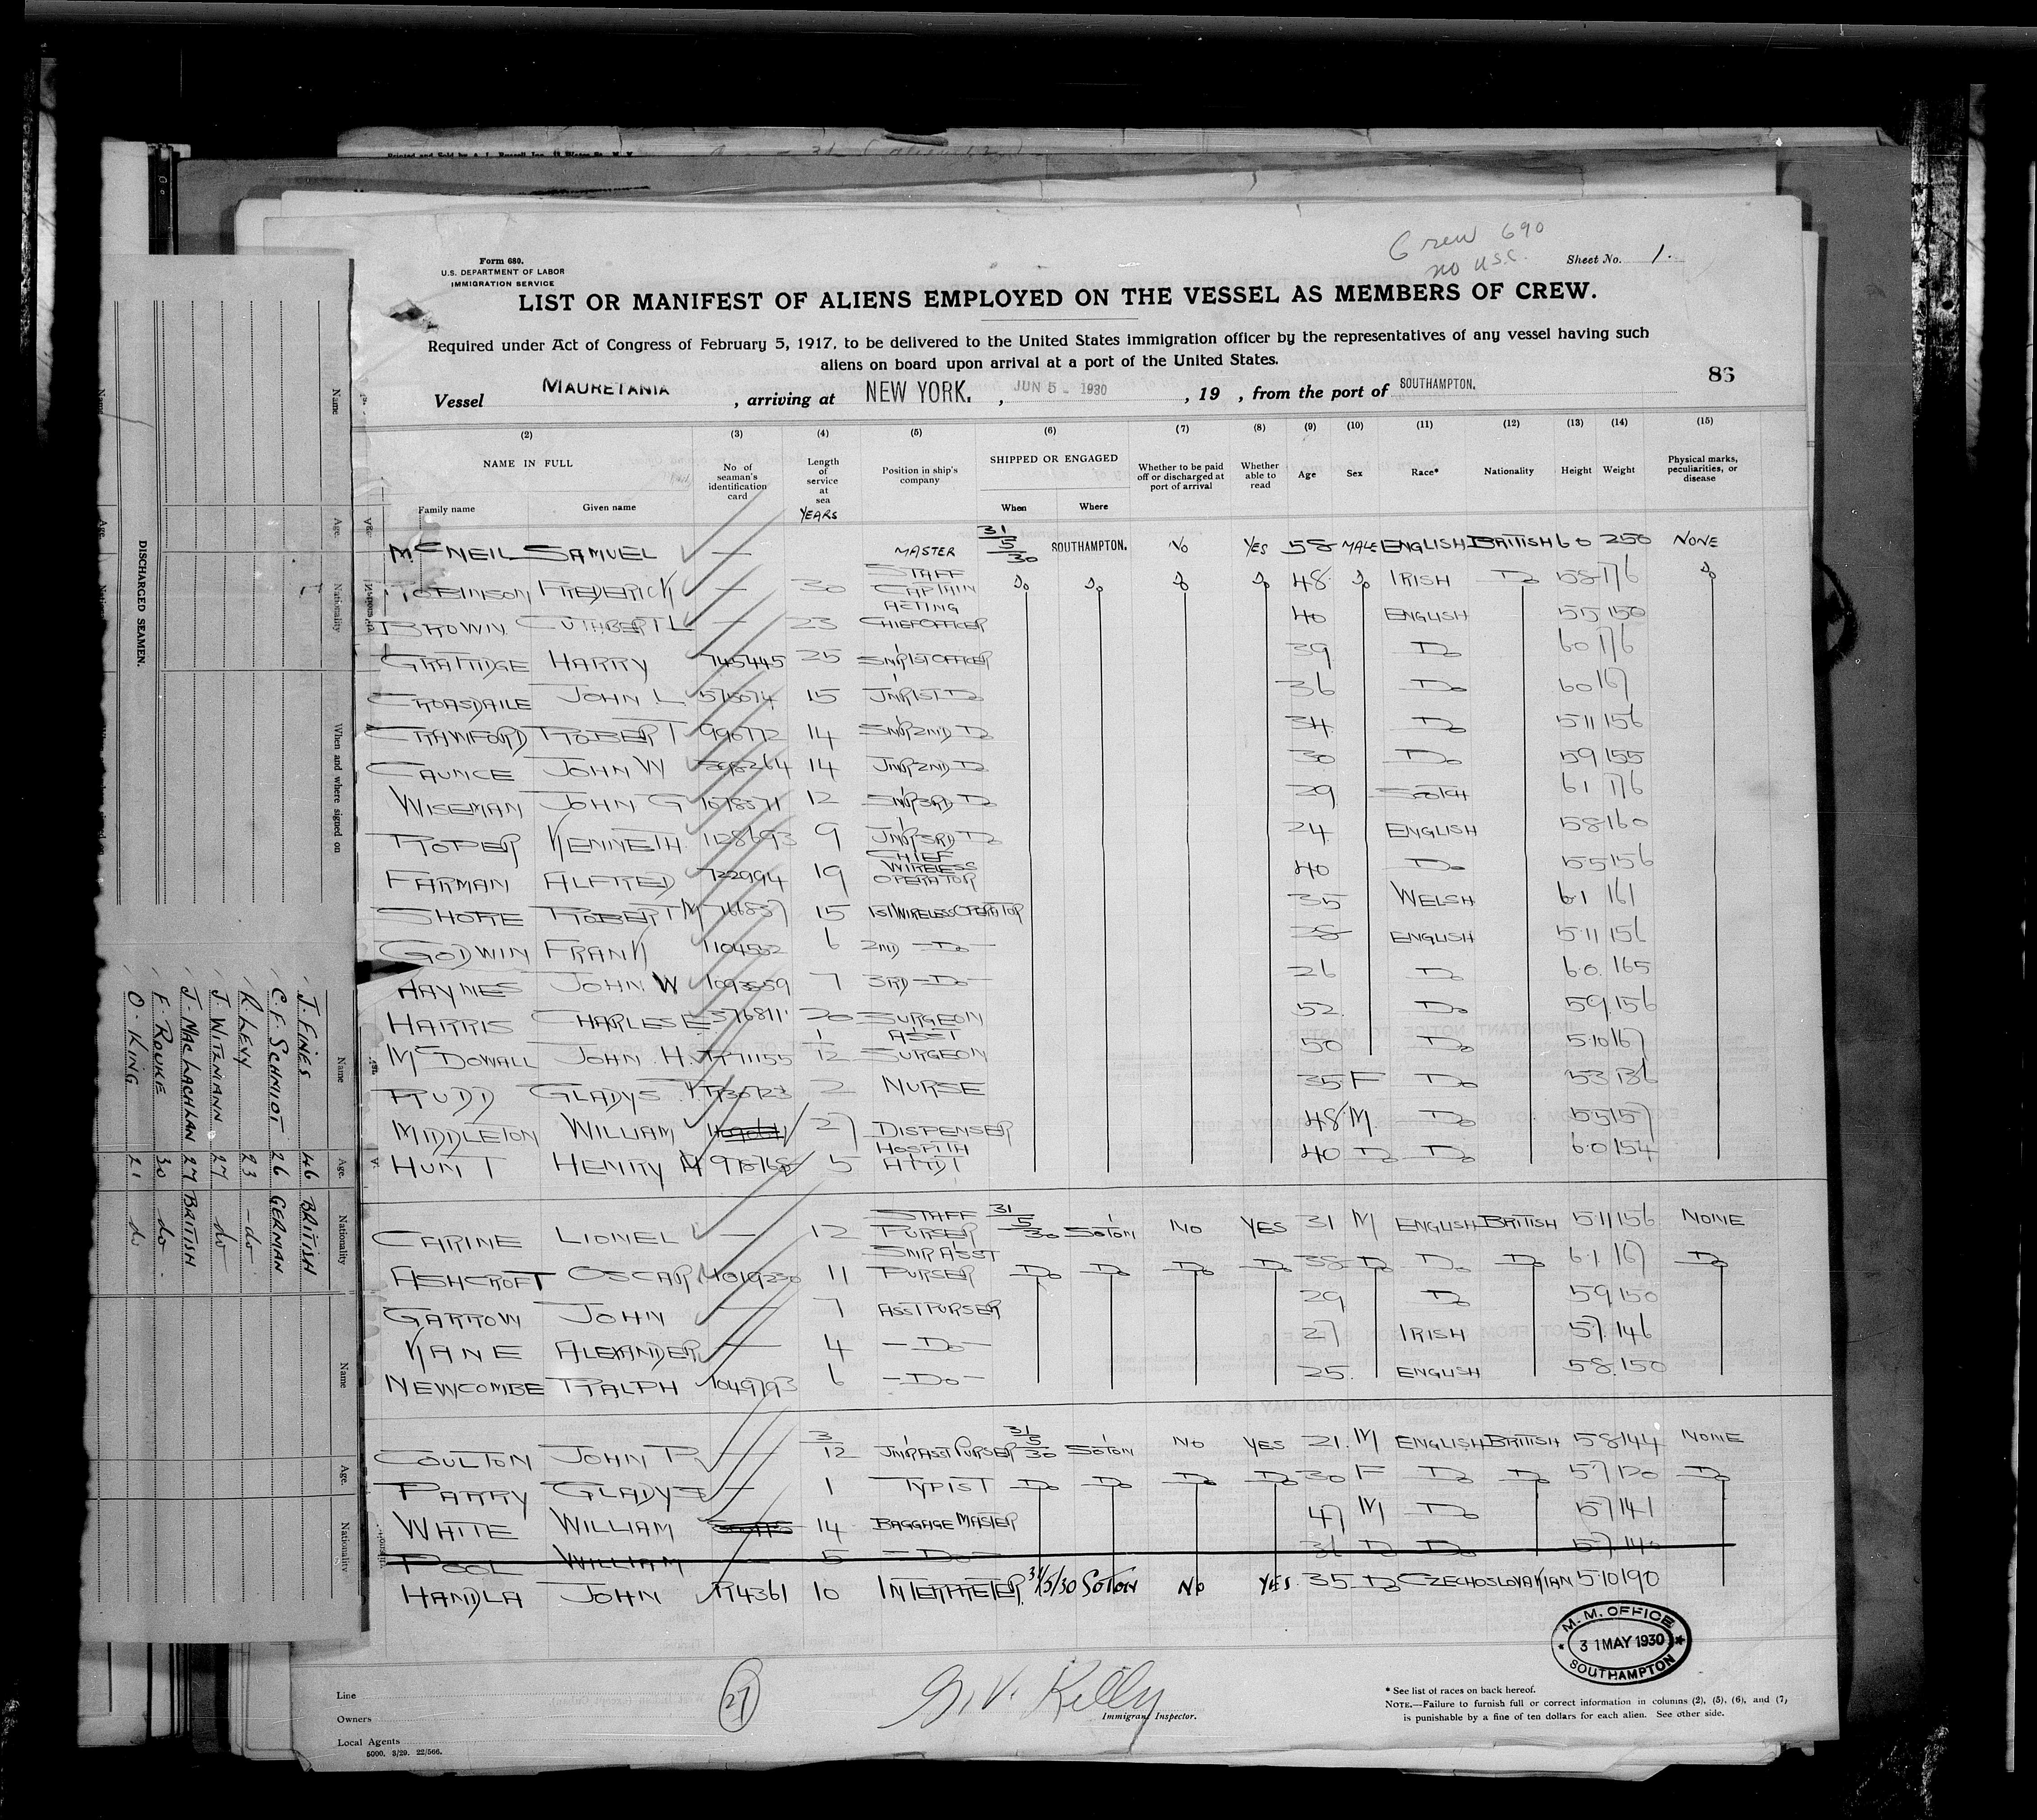 Crew 690
no U.S.C.
Form 680.
U.S. DEPARTMENT OF LABOR
IMMIGRATION SERVICE
Sheet No. 1.
LIST OR MANIFEST OF ALIENS EMPLOYED ON THE VESSEL AS MEMBERS OF CREW.
Required under Act of Congress of February 5, 1917, to be delivered to the United States immigration officer by the representatives of any vessel having such
aliens on board upon arrival at a port of the United States.
86
Vessel MAURETANIA, arriving at NEW YORK., JUN 5 - 1930, 19 , from the port of SOUTHAMPTON.
(2) (3) (4) (5) (6) (7) (8) (9) (10) (11) (12) (13) (14) (15)
NAME IN FULL
Family name Given name
No of seaman's identification card
Length of service at sea
YEARS
Position in ship's company
SHIPPED OR ENGAGED
When Where
Whether to be paid off or discharged at port of arrival
Whether able to read
Age Sex Race* Nationality Height Weight
Physical marks, peculiarities, or disease
McNEIL SAMUEL — MASTER 31/5/30 SOUTHAMPTON. No YES 58 MALE ENGLISH BRITISH 6 0 250 NONE
ROBINSON FREDERICK — 30 STAFF CAPTAIN Do Do Do Do 48 Do IRISH Do 5 8 176 Do
BROWN CUTHBERT L — 23 ACTING CHIEF OFFICER 40 ENGLISH 5 5 150
GRATTIDGE HARRY 745445 25 SNR 1ST OFFICER 39 Do 6 0 176
CROASDAILE JOHN L 15 JNR 1ST Do 36 Do 6 0 167
CRAWFORD ROBERT 996772 14 SNR 2ND Do 34 Do 5 11 156
CAUNCE JOHN W 14 JNR 2ND Do 30 Do 5 9 155
WISEMAN JOHN G 12 SNR 3RD Do 29 SCOTCH 6 1 176
ROPER KENNETH 1128693 9 JNR 3RD Do 24 ENGLISH 5 8 160
FARMAN ALFRED 722994 19 CHIEF WIRELESS OPERATOR 40 Do 5 5 156
SHORE ROBERT M 766837 15 1ST WIRELESS OPERATOR 35 WELSH 6 1 161
GODWIN FRANK 6 2ND — Do — 28 ENGLISH 5 11 156
HAYNES JOHN W 7 3RD — Do — 26 Do 6 0 165
HARRIS CHARLES E 576811 20 SURGEON 52 Do 5 9 156
McDOWALL JOHN H. R771155 1/12 ASST SURGEON 50 Do 5 10 167
RUDD GLADYS 2 NURSE 35 F Do 5 3 136
MIDDLETON WILLIAM 27 DISPENSER 48 M. Do 5 5 157
HUNT HENRY M 5 HOSPITAL ATTDT 40 Do Do 6 0 154
CARINE LIONEL — 12 STAFF PURSER 31/5/30 SO'TON NO YES 31 M ENGLISH BRITISH 5 11 156 NONE
ASHCROFT OSCAR 11 SNR ASST PURSER Do Do Do Do 38 Do Do Do 6 1 167 Do
GARROW JOHN — 7 ASST PURSER 29 Do 5 9 150
KANE ALEXANDER — 4 — Do — 27 IRISH 5 7 146
NEWCOMBE RALPH 1049793 6 — Do — 25 ENGLISH 5 8 150
COULTON JOHN R — 3/12 JNR ASST PURSER 31/5/30 SO'TON NO YES 21 M ENGLISH BRITISH 5 8 144 NONE
PARRY GLADYS — 1 TYPIST Do Do Do Do 30 F Do Do 5 7 120 Do
WHITE WILLIAM 14 BAGGAGE MASTER 47 M Do 5 7 141
POOL WILLIAM — 5 — Do — 36 Do Do 5 7 140
HANDLA JOHN R14361 10 INTERPRETER 31/5/30 SO'TON NO YES 35 Do CZECHOSLOVAKIAN 5 10 190
M. M. OFFICE
31 MAY 1930
SOUTHAMPTON
Line
Owners
Local Agents
5000. 3/29. 22/566.
27
G. V. Kelly
Immigrant Inspector.
* See list of races on back hereof.
NOTE.—Failure to furnish full or correct information in columns (2), (5), (6), and (7,
is punishable by a fine of ten dollars for each alien. See other side.
DISCHARGED SEAMEN.
Name Age. Nationality When and where signed on
Name Age. Nationality
Name Age. Nationality
J. FINES 46 BRITISH
C. F. SCHMIDT 26 GERMAN
R. LEVY 23 - do -
J. WITZMANN 27 do
J. MACLACHLAN 27 BRITISH
F. ROURKE 30 do.
O. KING 21 do